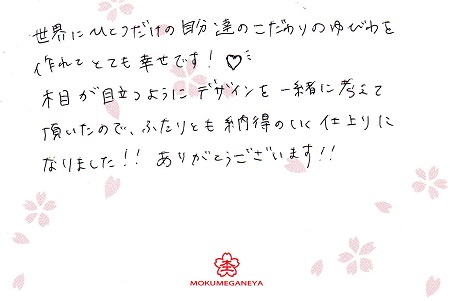 世界にひとつだけの自分達のこだわりのゆびわを
作れてとても幸せです!♡
木目が目立つようにデザインを一緒に考えて
頂いたので、ふたりとも納得のいく仕上りに
なりました!! ありがとうございます!!
杢
MOKUMEGANEYA